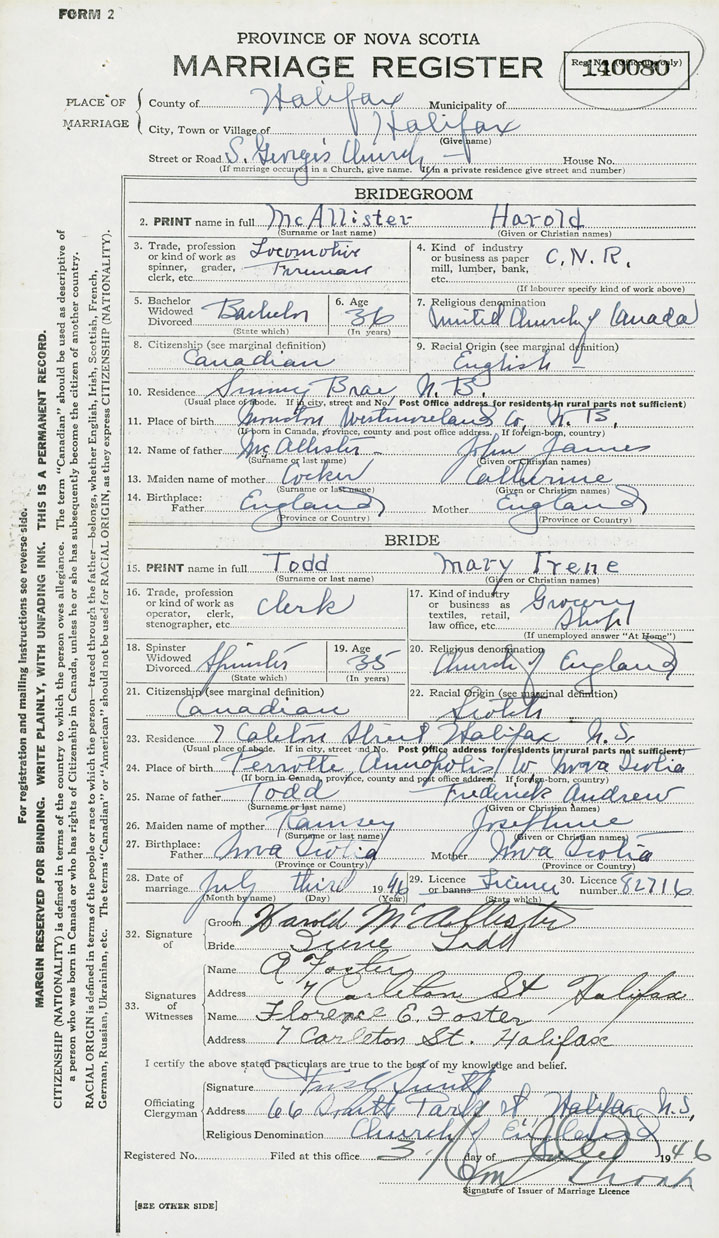 FORM 2
PROVINCE OF NOVA SCOTIA
MARRIAGE REGISTER
140080
PLACE OF MARRIAGE
County of Halifax Municipality of
City, Town or Village of Halifax
(Give name)
Street or Road S. George's Church House No.
(If marriage occurred in a Church, give name. If in a private residence give street and number)
BRIDEGROOM
2. PRINT name in full McAllister Harold
(Surname or last name) (Given or Christian names)
3. Trade, profession or kind of work as spinner, grader, clerk, etc. Locomotive Fireman
4. Kind of industry or business as paper mill, lumber, bank, etc. C.N.R.
(If labourer specify kind of work above)
5. Bachelor Widowed Divorced Bachelor
(State which)
6. Age 36
(In years)
7. Religious denomination United Church of Canada
8. Citizenship (see marginal definition) Canadian
9. Racial Origin (see marginal definition) English
10. Residence Sunny Brae N.B.
(Usual place of abode. If in city, street and No. Post Office address for residents in rural parts not sufficient)
11. Place of birth Moncton Westmoreland Co, N.B.
(If born in Canada, province, county and post office address. If foreign-born, country)
12. Name of father McAllister John James
(Surname or last name) (Given or Christian names)
13. Maiden name of mother Cocker Catherine
(Surname or last name) (Given or Christian names)
14. Birthplace: Father England Mother England
(Province or Country) (Province or Country)
BRIDE
15. PRINT name in full Todd Mary Irene
(Surname or last name) (Given or Christian names)
16. Trade, profession or kind of work as operator, clerk, stenographer, etc. Clerk
17. Kind of industry or business as textiles, retail, law office, etc. Grocery Shop
(If unemployed answer "At Home")
18. Spinster Widowed Divorced Spinster
(State which)
19. Age 35
(In years)
20. Religious denomination Church of England
21. Citizenship (see marginal definition) Canadian
22. Racial Origin (see marginal definition) Scotch
23. Residence 7 Carleton Street Halifax N.S.
(Usual place of abode. If in city, street and No. Post Office address for residents in rural parts not sufficient)
24. Place of birth Perrotte Annapolis Co Nova Scotia
(If born in Canada, province, county and post office address. If foreign-born, country)
25. Name of father Todd Frederick Andrew
(Surname or last name) (Given or Christian names)
26. Maiden name of mother Ramsey Josephine
(Surname or last name) (Given or Christian names)
27. Birthplace: Father Nova Scotia Mother Nova Scotia
(Province or Country) (Province or Country)
28. Date of marriage July third 1946
(Month by name) (Day) (Year)
29. Licence or banns Licence
(State which)
30. Licence number 82716
32. Signature of
Groom Harold McAllister
Bride Irene Todd
33. Signatures of Witnesses
Name A Foster
Address 7 Carleton St Halifax
Name Florence E. Foster
Address 7 Carleton St. Halifax
I certify the above stated particulars are true to the best of my knowledge and belief.
Officiating Clergyman
Signature Smith
Address 66 South Park St Halifax, N.S.
Religious Denomination Church of England
Registered No. Filed at this office 3 day of July 1946
Signature of Issuer of Marriage Licence
[SEE OTHER SIDE]
For registration and mailing instructions see reverse side.
MARGIN RESERVED FOR BINDING. WRITE PLAINLY, WITH UNFADING INK. THIS IS A PERMANENT RECORD.
CITIZENSHIP (NATIONALITY) is defined in terms of the country to which the person owes allegiance. The term "Canadian" should be used as descriptive of
a person who was born in Canada or who has rights of Citizenship in Canada, unless he or she has subsequently become the citizen of another country.
RACIAL ORIGIN is defined in terms of the people or race to which the person—traced through the father—belongs, whether English, Irish, Scottish, French,
German, Russian, Ukrainian, etc. The terms "Canadian" or "American" should not be used for RACIAL ORIGIN, as they express CITIZENSHIP (NATIONALITY).